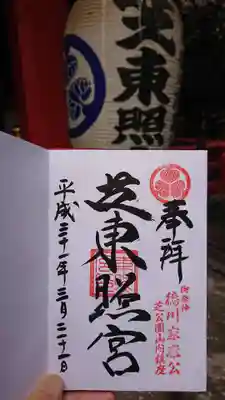 芝東照
奉拝
御祭神
徳川家康公
芝公園山内鎮座
芝東照宮
平成三十一年三月二十一日